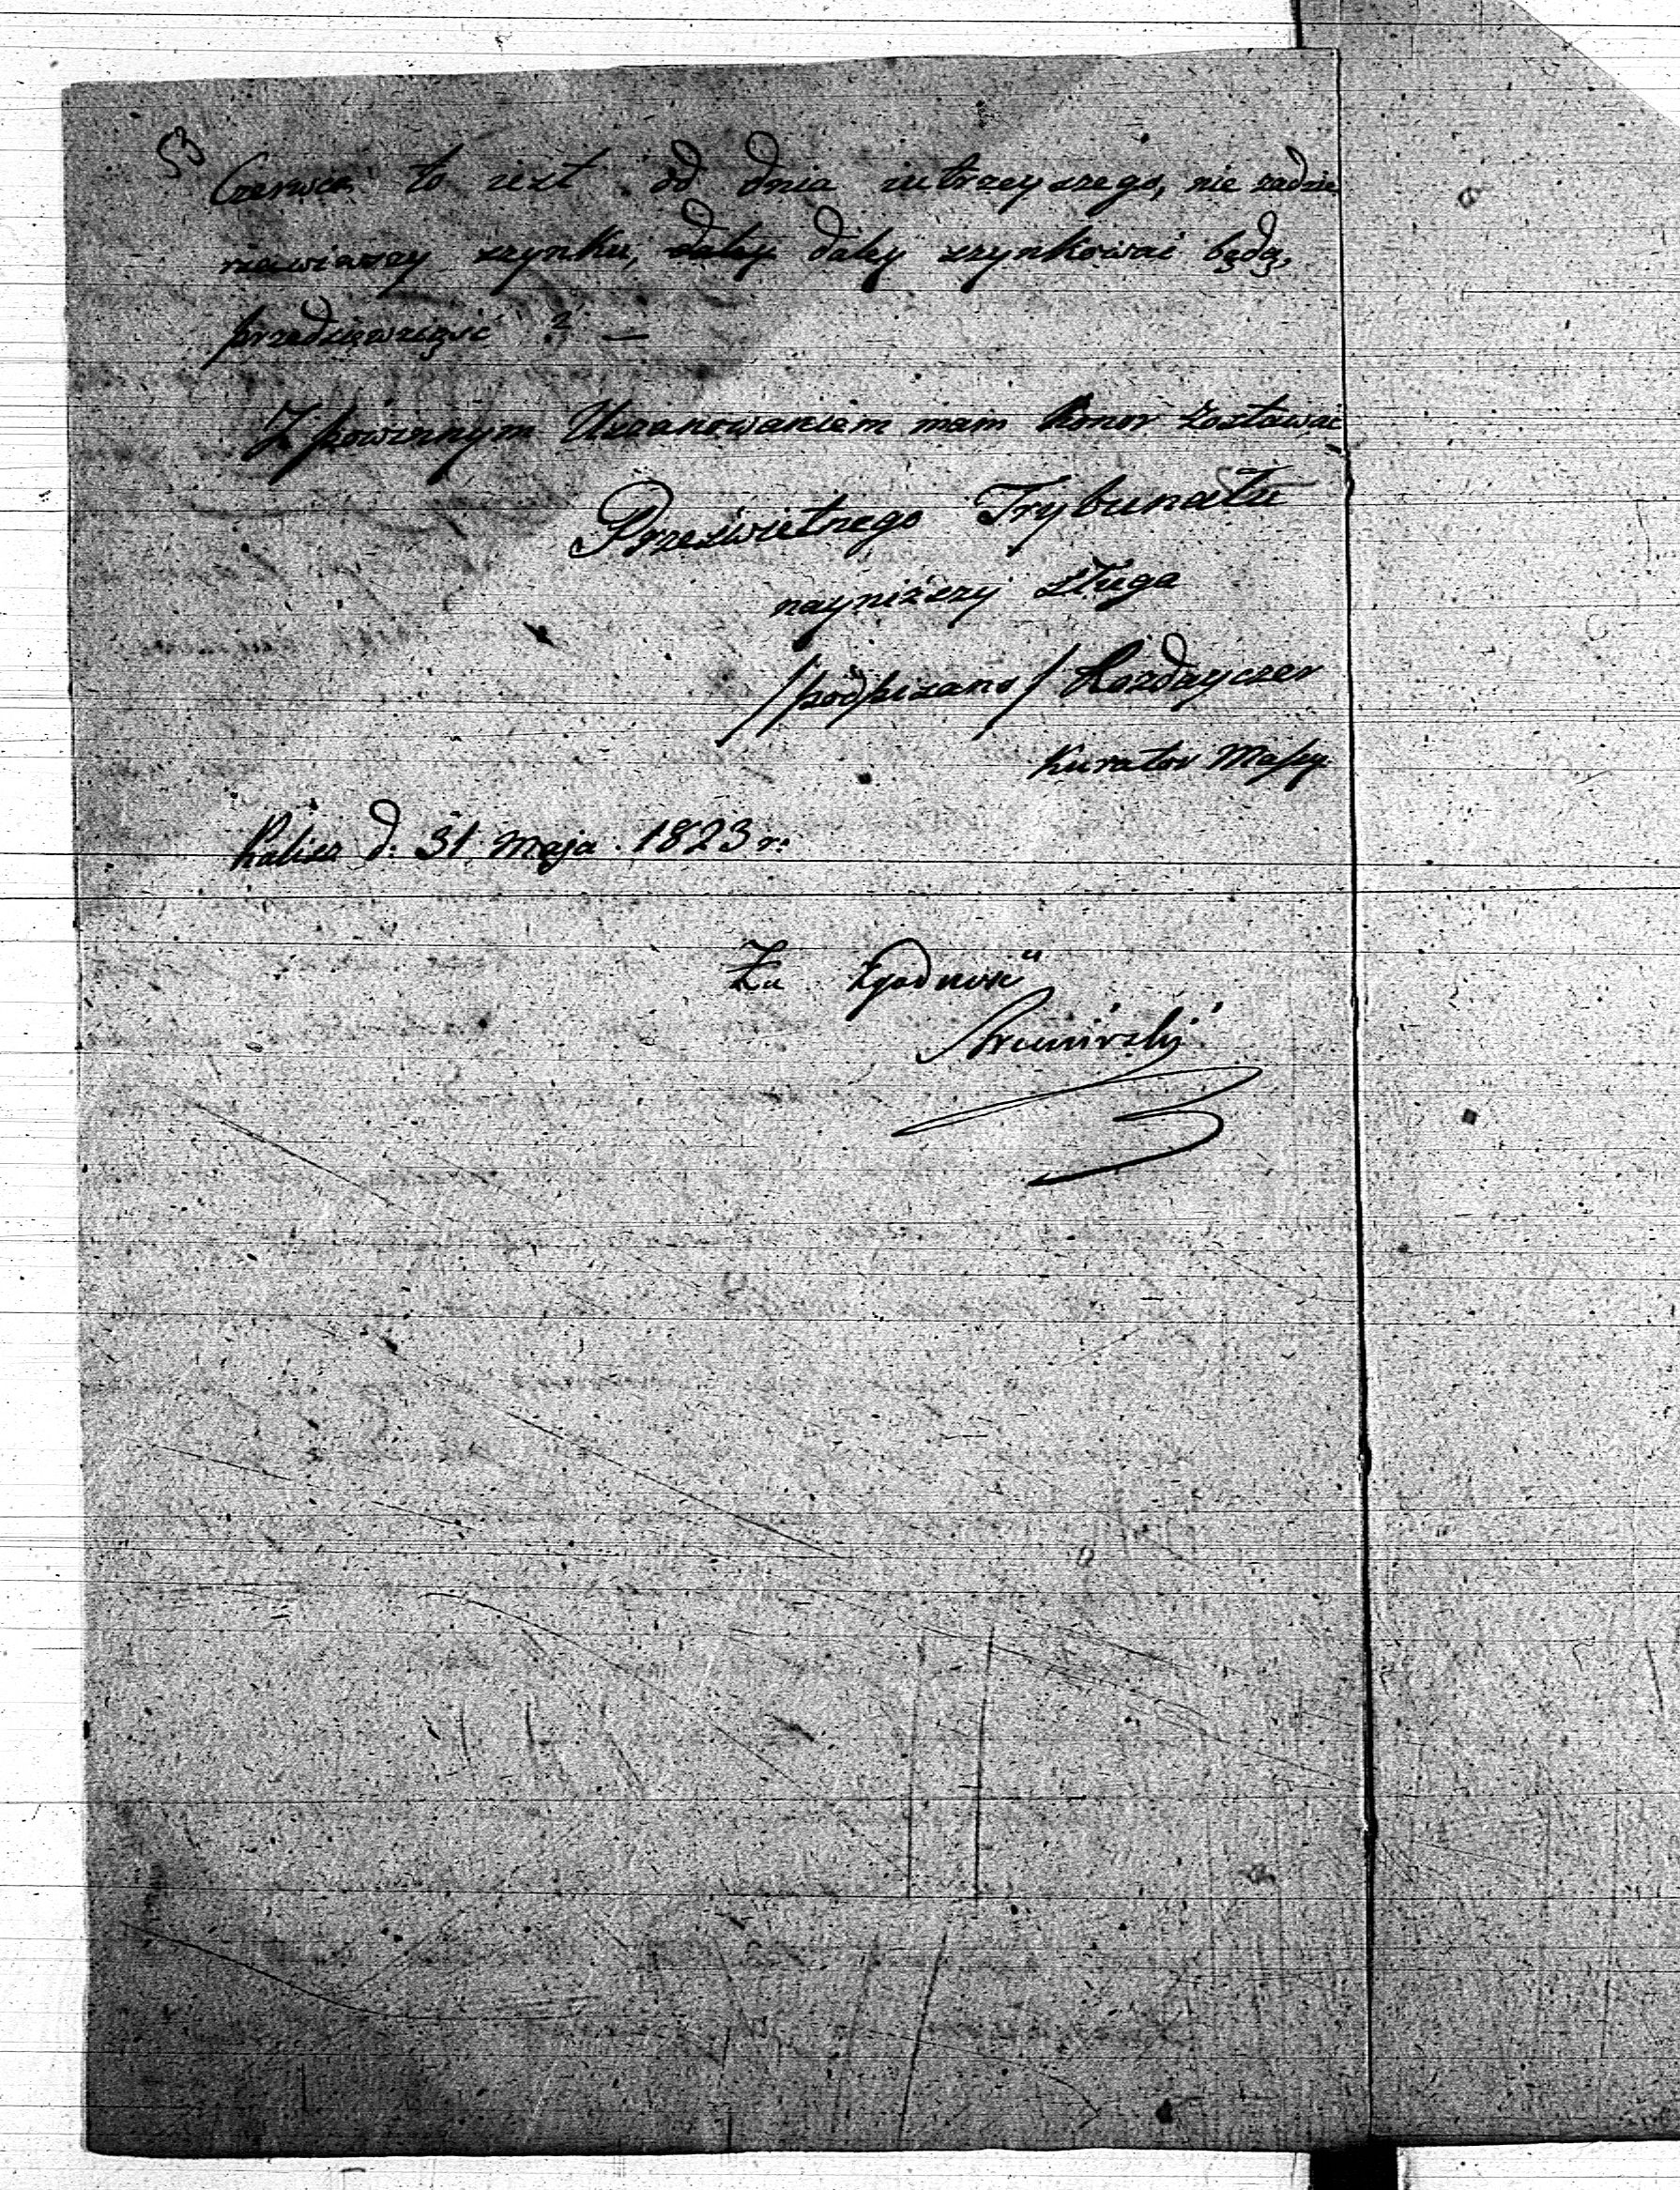 53
Czerwca to iest od dnia iutrzeyszego, nie zadzie
rzawiwszy szynku, daley daley szynkować będą,
przedsięwziąść ? —
Z powinnym Uszanowaniem mam Honor zostawać
Prześwietnego Trybunału
nayniższy sługa
/podpisano/
Kurator Massy
Kalisz d. 31 Maja 1823 r.
Za Zgodność